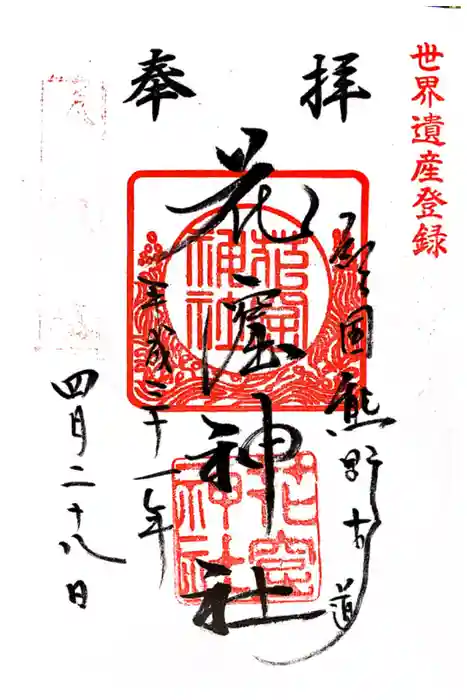 世界遺産登録
奉拝
国熊野古道
花窟神社
平成三十一年
四月二十八日
花窟神社
花窟神社